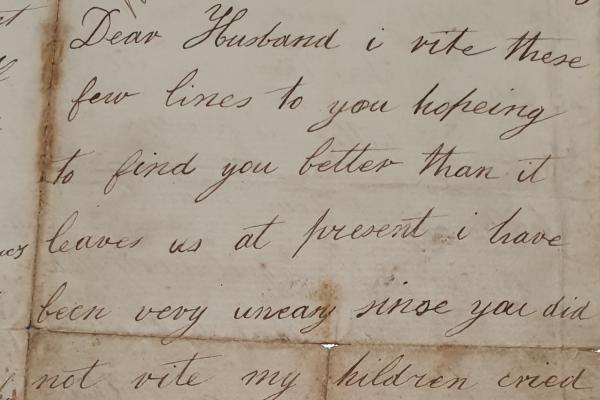 Dear Husband i vite these
few lines to you hopeing
to find you better than it
leaves us at present i have
been very uneasy sinse you did
not vite my hildren cried